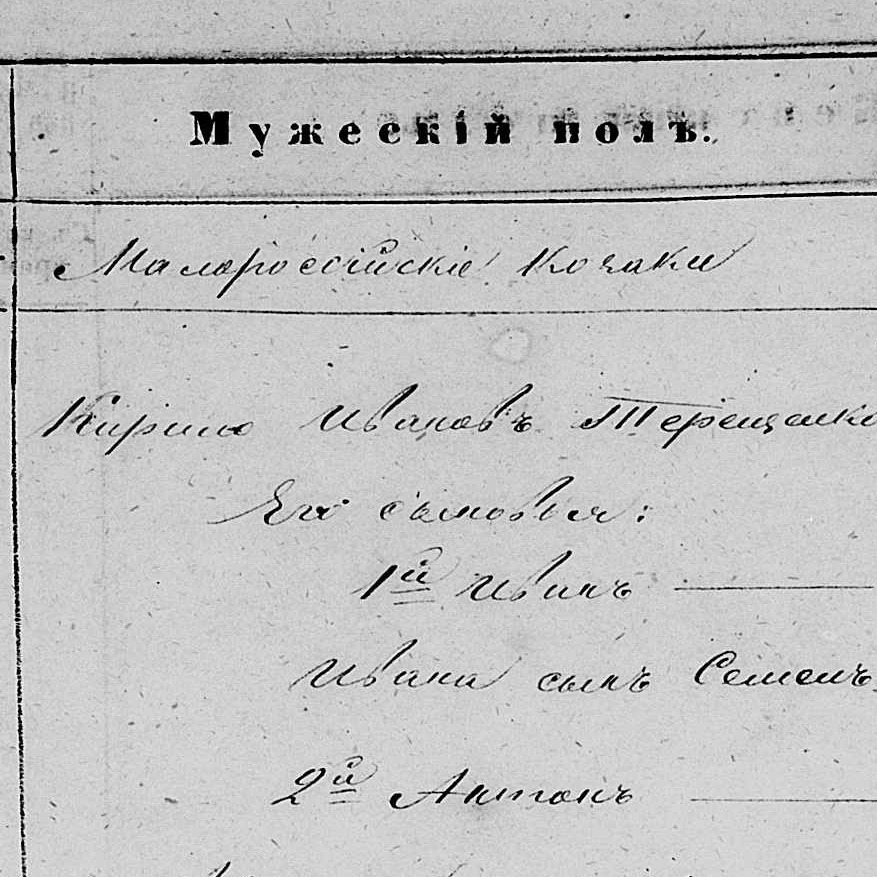 Мужескій полъ.
Малороссійскіе Козаки
Кирило Ивановъ Терещенко
Его сыновья:
1й Иванъ
Ивана сынъ Семенъ
2й Антонъ